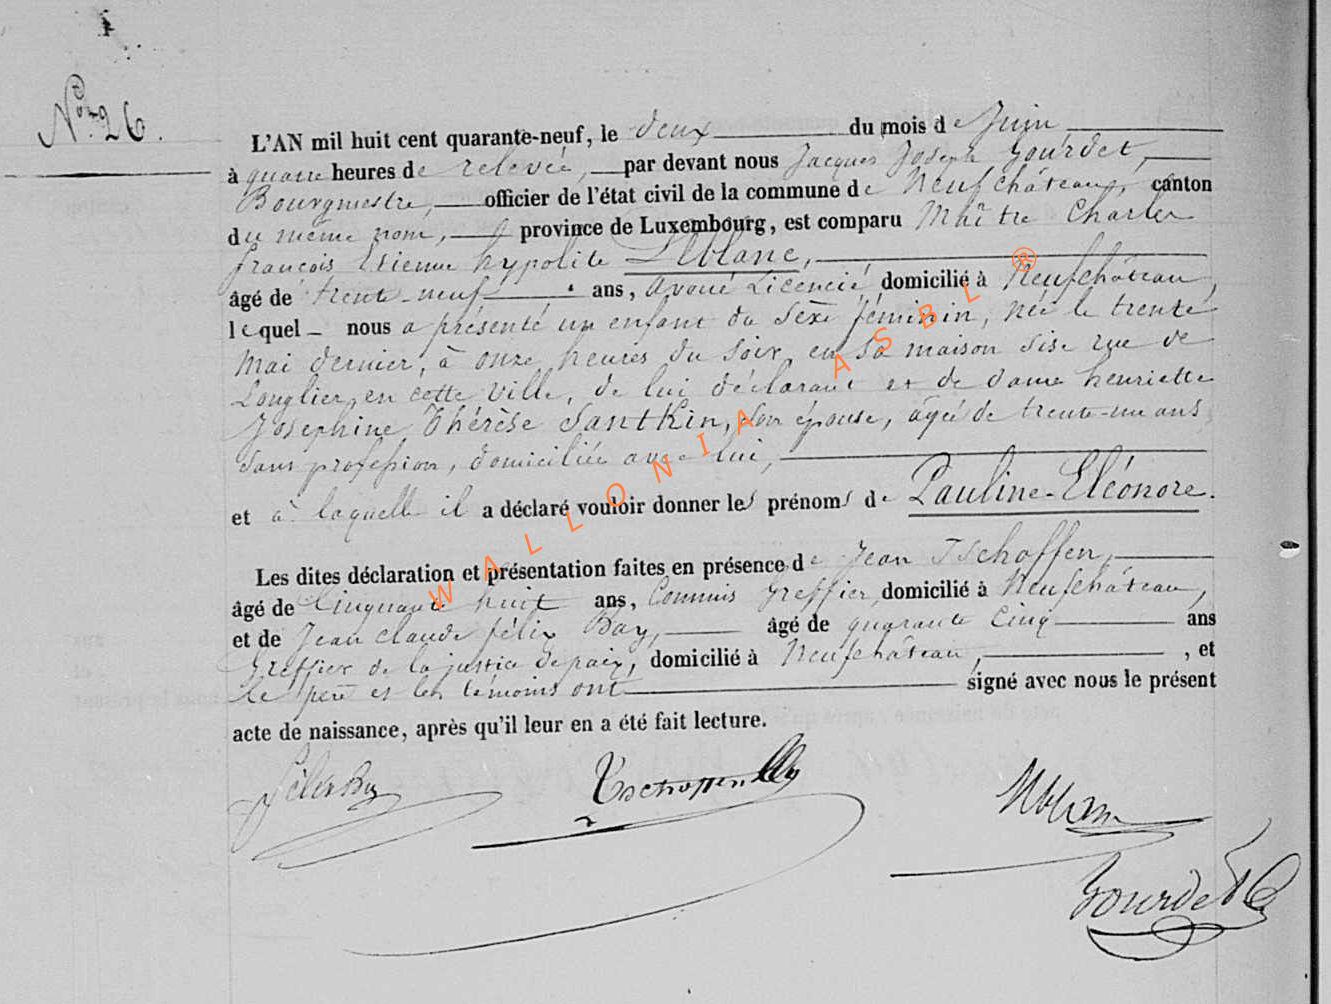 Nº 26.
L'AN mil huit cent quarante-neuf, le deux du mois de Juin,
à quatre heures de relevée, par devant nous Jacques Joseph Gourdet,
Bourgmestre, officier de l'état civil de la commune de Neufchâteau, canton
du même nom, province de Luxembourg, est comparu Maître Charles
françois Etienne hypolite Leblanc,
âgé de trente-neuf ans, avoué Licencié domicilié à Neufchâteau,
lequel nous a présenté un enfant du sèxe féminin, née le trente
mai dernier, à onze heures du soir, en sa maison sise rue de
Longlier, en cette ville, de lui déclarant et de dame henriette
Josephine Thérèse Santkin, son épouse, âgée de trente-un ans
sans profession, domiciliée avec lui,
et à laquelle il a déclaré vouloir donner les prénoms de Pauline-Eléonore.
Les dites déclaration et présentation faites en présence de Jean Tschoffen,
âgé de Cinquante huit ans, Commis Greffier, domicilié à Neufchâteau,
et de Jean Claude félix Bay, âgé de quarante Cinq ans
Greffier de la justice de paix, domicilié à Neufchâteau, , et
Le père et les témoins ont signé avec nous le présent
acte de naissance, après qu'il leur en a été fait lecture.
Tschoffen
Gourdet
WALLONIA ASBL ®